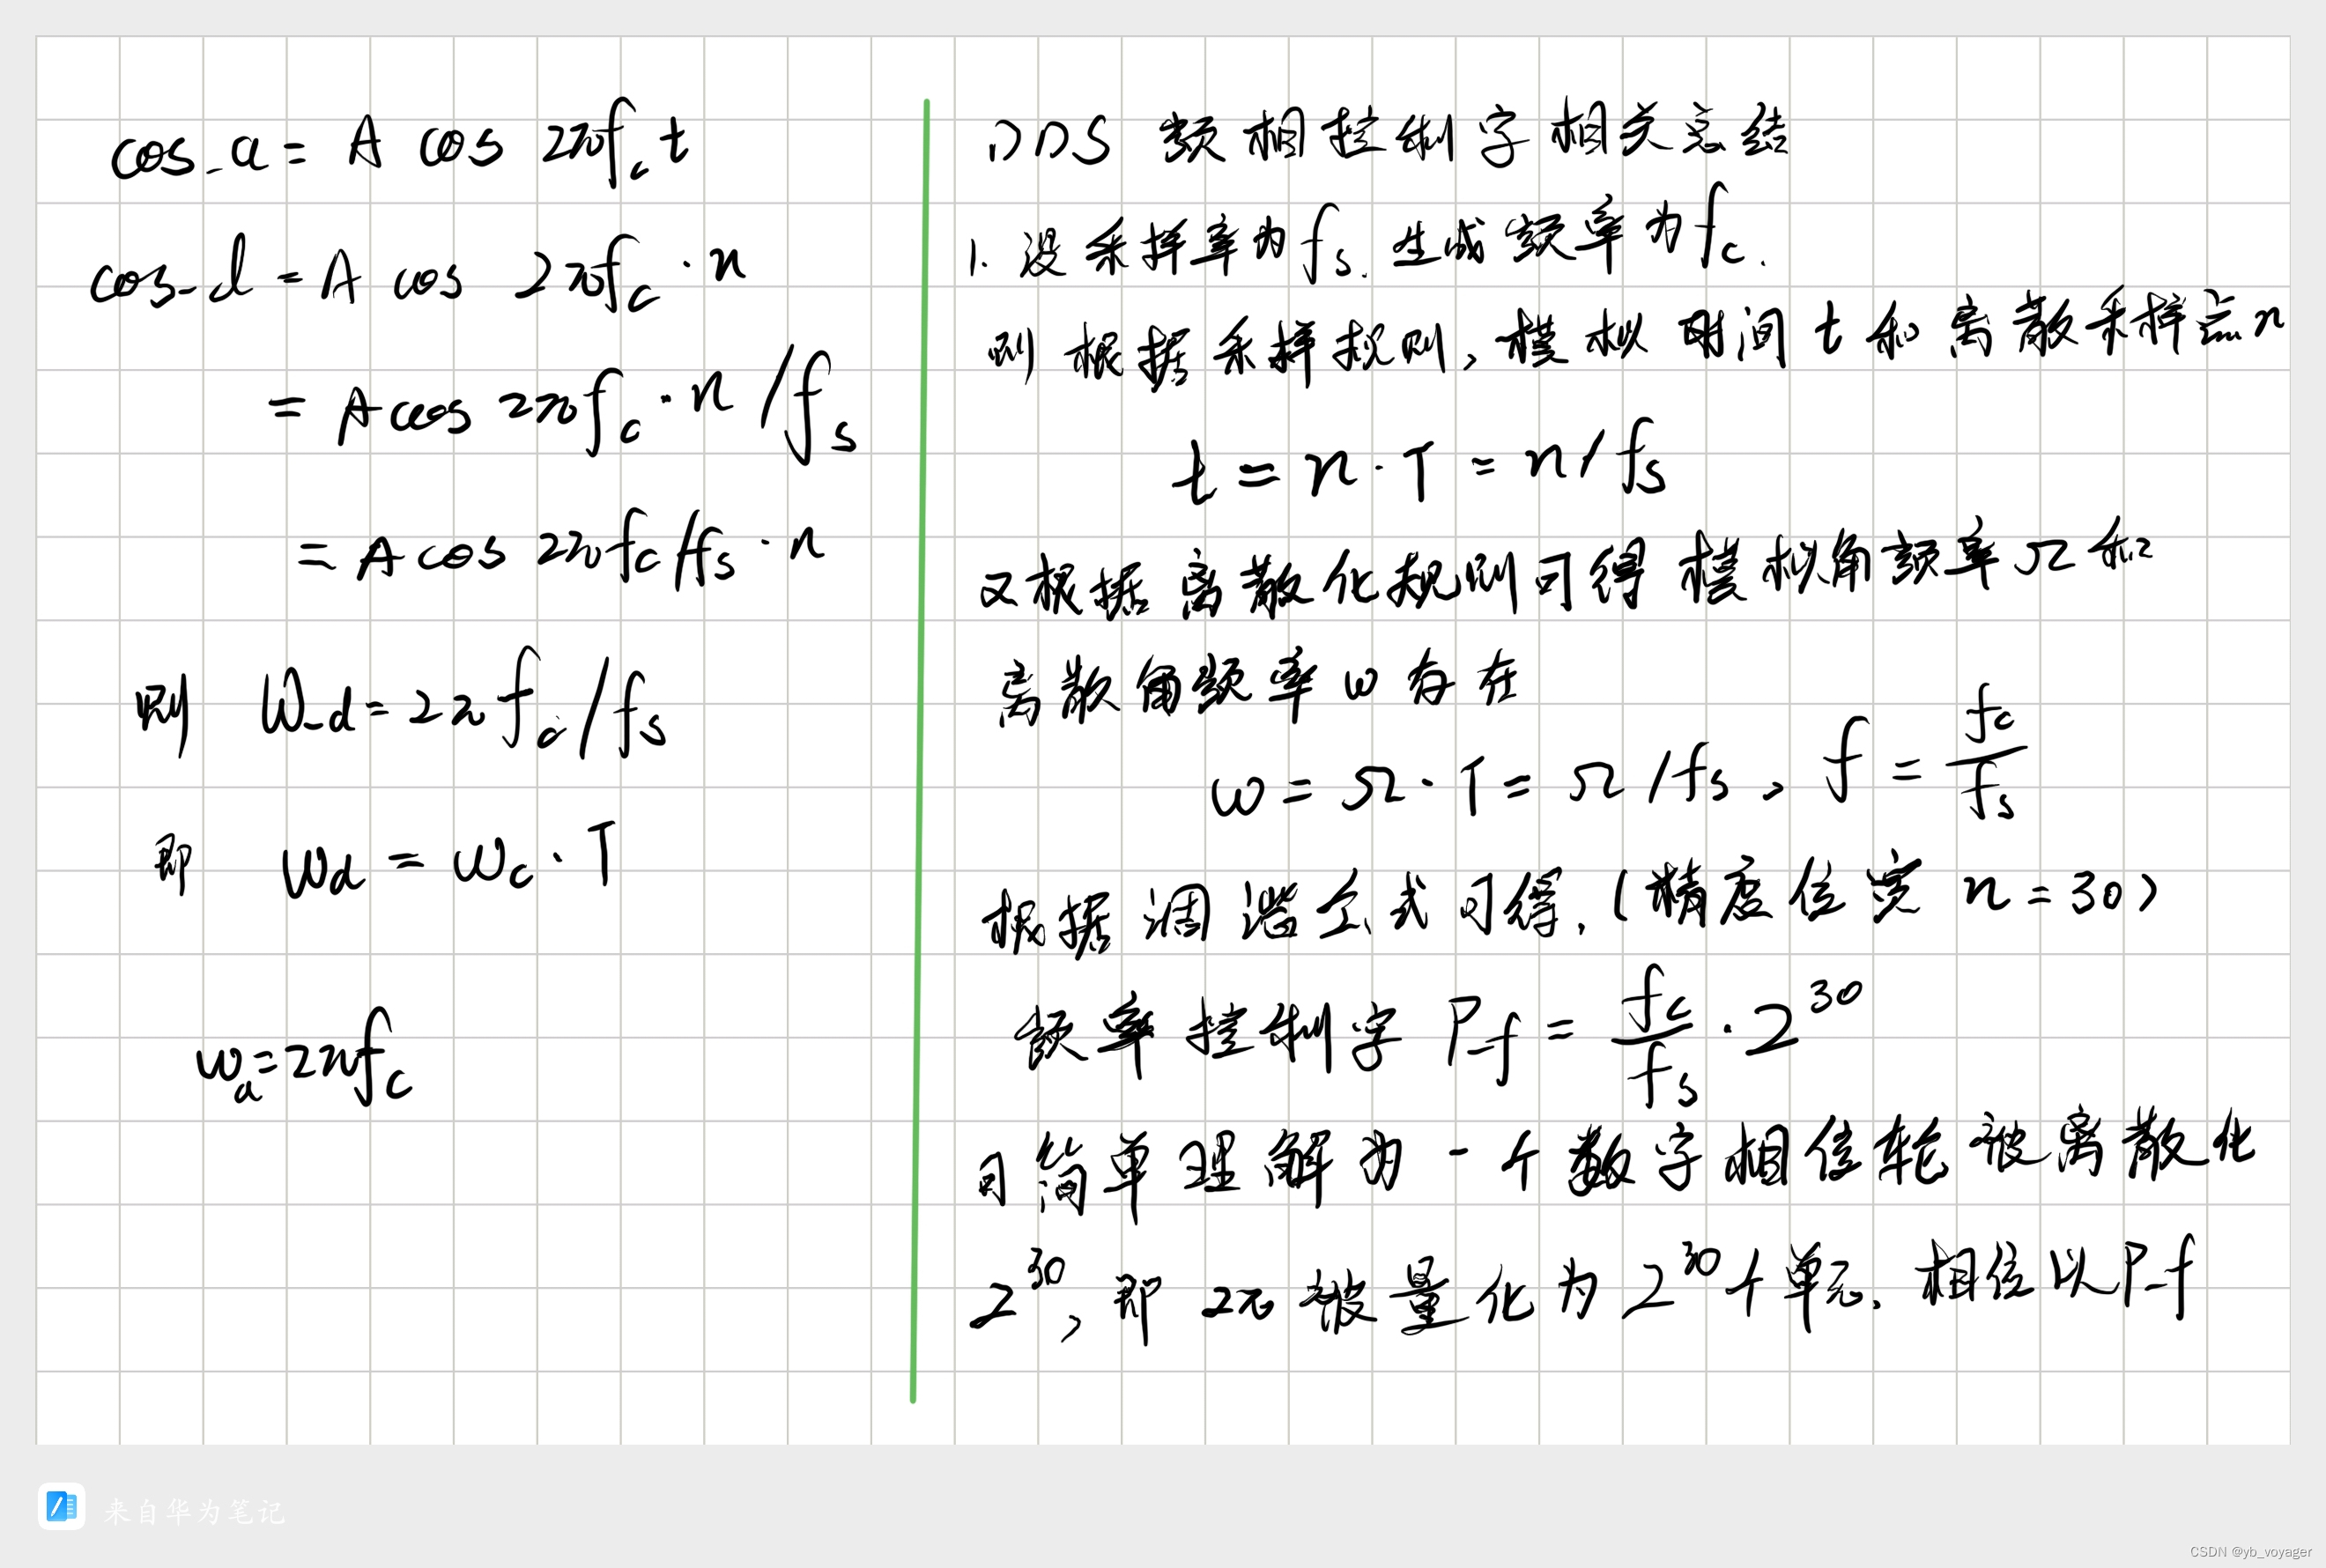 cos_a = A cos 2πf_c t
cos_d = A cos 2πf_c · n
= A cos 2πf_c · n / f_s
= A cos 2πf_c / f_s · n
则 W_d = 2πf_c / f_s
即 W_d = W_c · T
W_a = 2πf_c
DDS 频相控制字相关总结
1. 设采样率为 f_s. 生成频率为 f_c.
则根据采样规则, 模拟时间 t 和离散采样点 n
t = n · T = n / f_s
又根据离散化规则可得模拟角频率 Ω 和
离散角频率 ω 存在
ω = Ω · T = Ω / f_s, f = f_c / f_s
根据调谐公式可得. (精度位宽 n = 30)
频率控制字 P_f = f_c / f_s · 2^30
可简单理解为一个数字相位轮被离散化
2^30, 即 2π 被量化为 2^30 个单元. 相位以 P_f
来自华为笔记
CSDN @yb_voyager